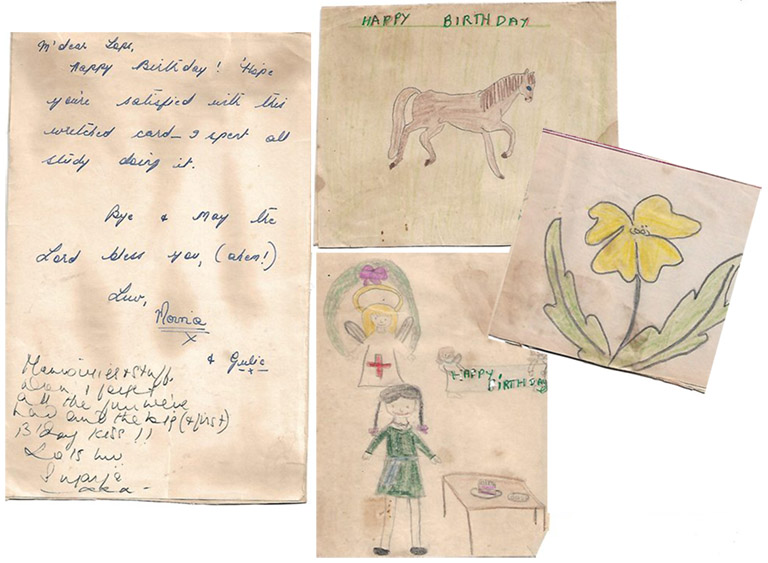 M' dear Lops,
Happy Birthday! 'Hope
you're satisfied with this
wretched card - I spent all
study doing it.
Bye & May the
Lord bless you, (ahem!)
Luv,
Morria
x
& Gulie
Memories & stuff.
dear I forget
all the fun we've
had and the big (& first)
B'day kiss!!
Lots luv
HAPPY BIRTHDAY
HAPPY
BIRTHDAY